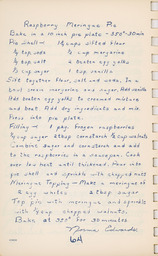 Raspberry Meringue Pie
Bake in 10 inch pie plate - 350° - 30 min
Pie shell - 1½ cups sifted flour
½ tsp. salt ½ cup margarine
½ tsp. soda 2 beaten egg yolks
½ cup sugar 1 tsp. vanilla
Sift together flour, salt and soda. In a
bowl cream margarine and sugar. Add vanilla
Add beaten egg yolks to creamed mixture
and beat. Add dry ingredients and mix.
Press into pie plate.
Filling - 1 pkg. frozen raspberries
cup sugar cornstarch cup walnuts
Combine sugar and cornstarch and add
to the raspberries in a saucepan. Cook
over low heat until thickened. Pour into
pie shell and sprinkle with chopped nuts
Meringue Topping - Make a meringue of
2 egg whites sugar
Top pie with meringue and sprinkle
with cup chopped walnuts.
Bake at 350° for 30 minutes
Norma Edwards
64